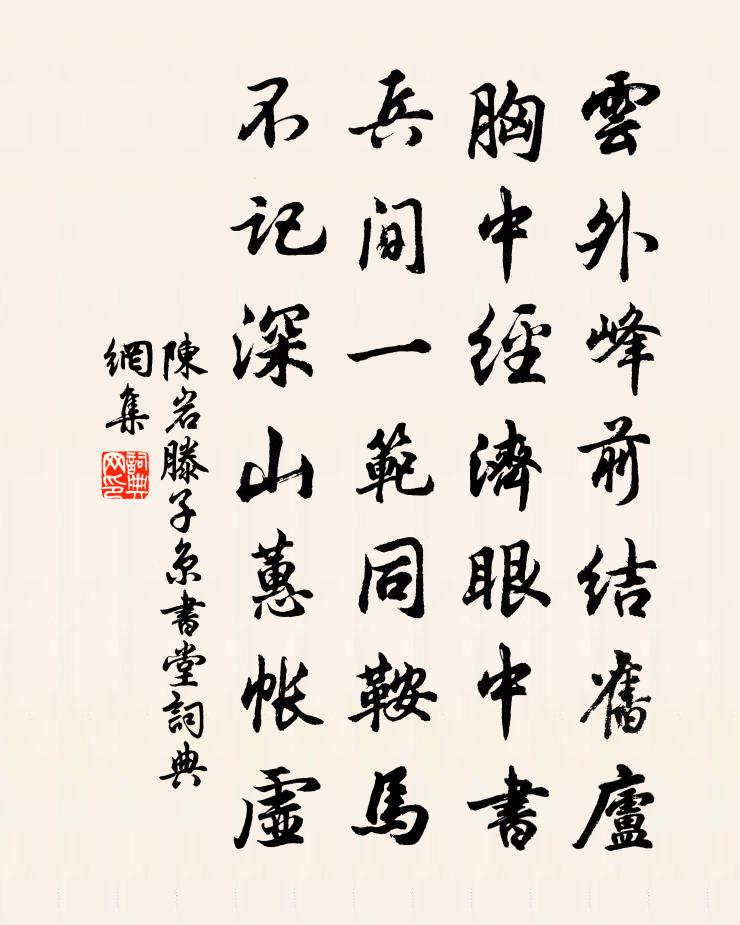 雲外峰前結舊廬
胸中經濟眼中書
兵間一範同鞍馬
不記深山蕙帳虛
陳岩滕子京書堂詞典
網集
詞典
网印